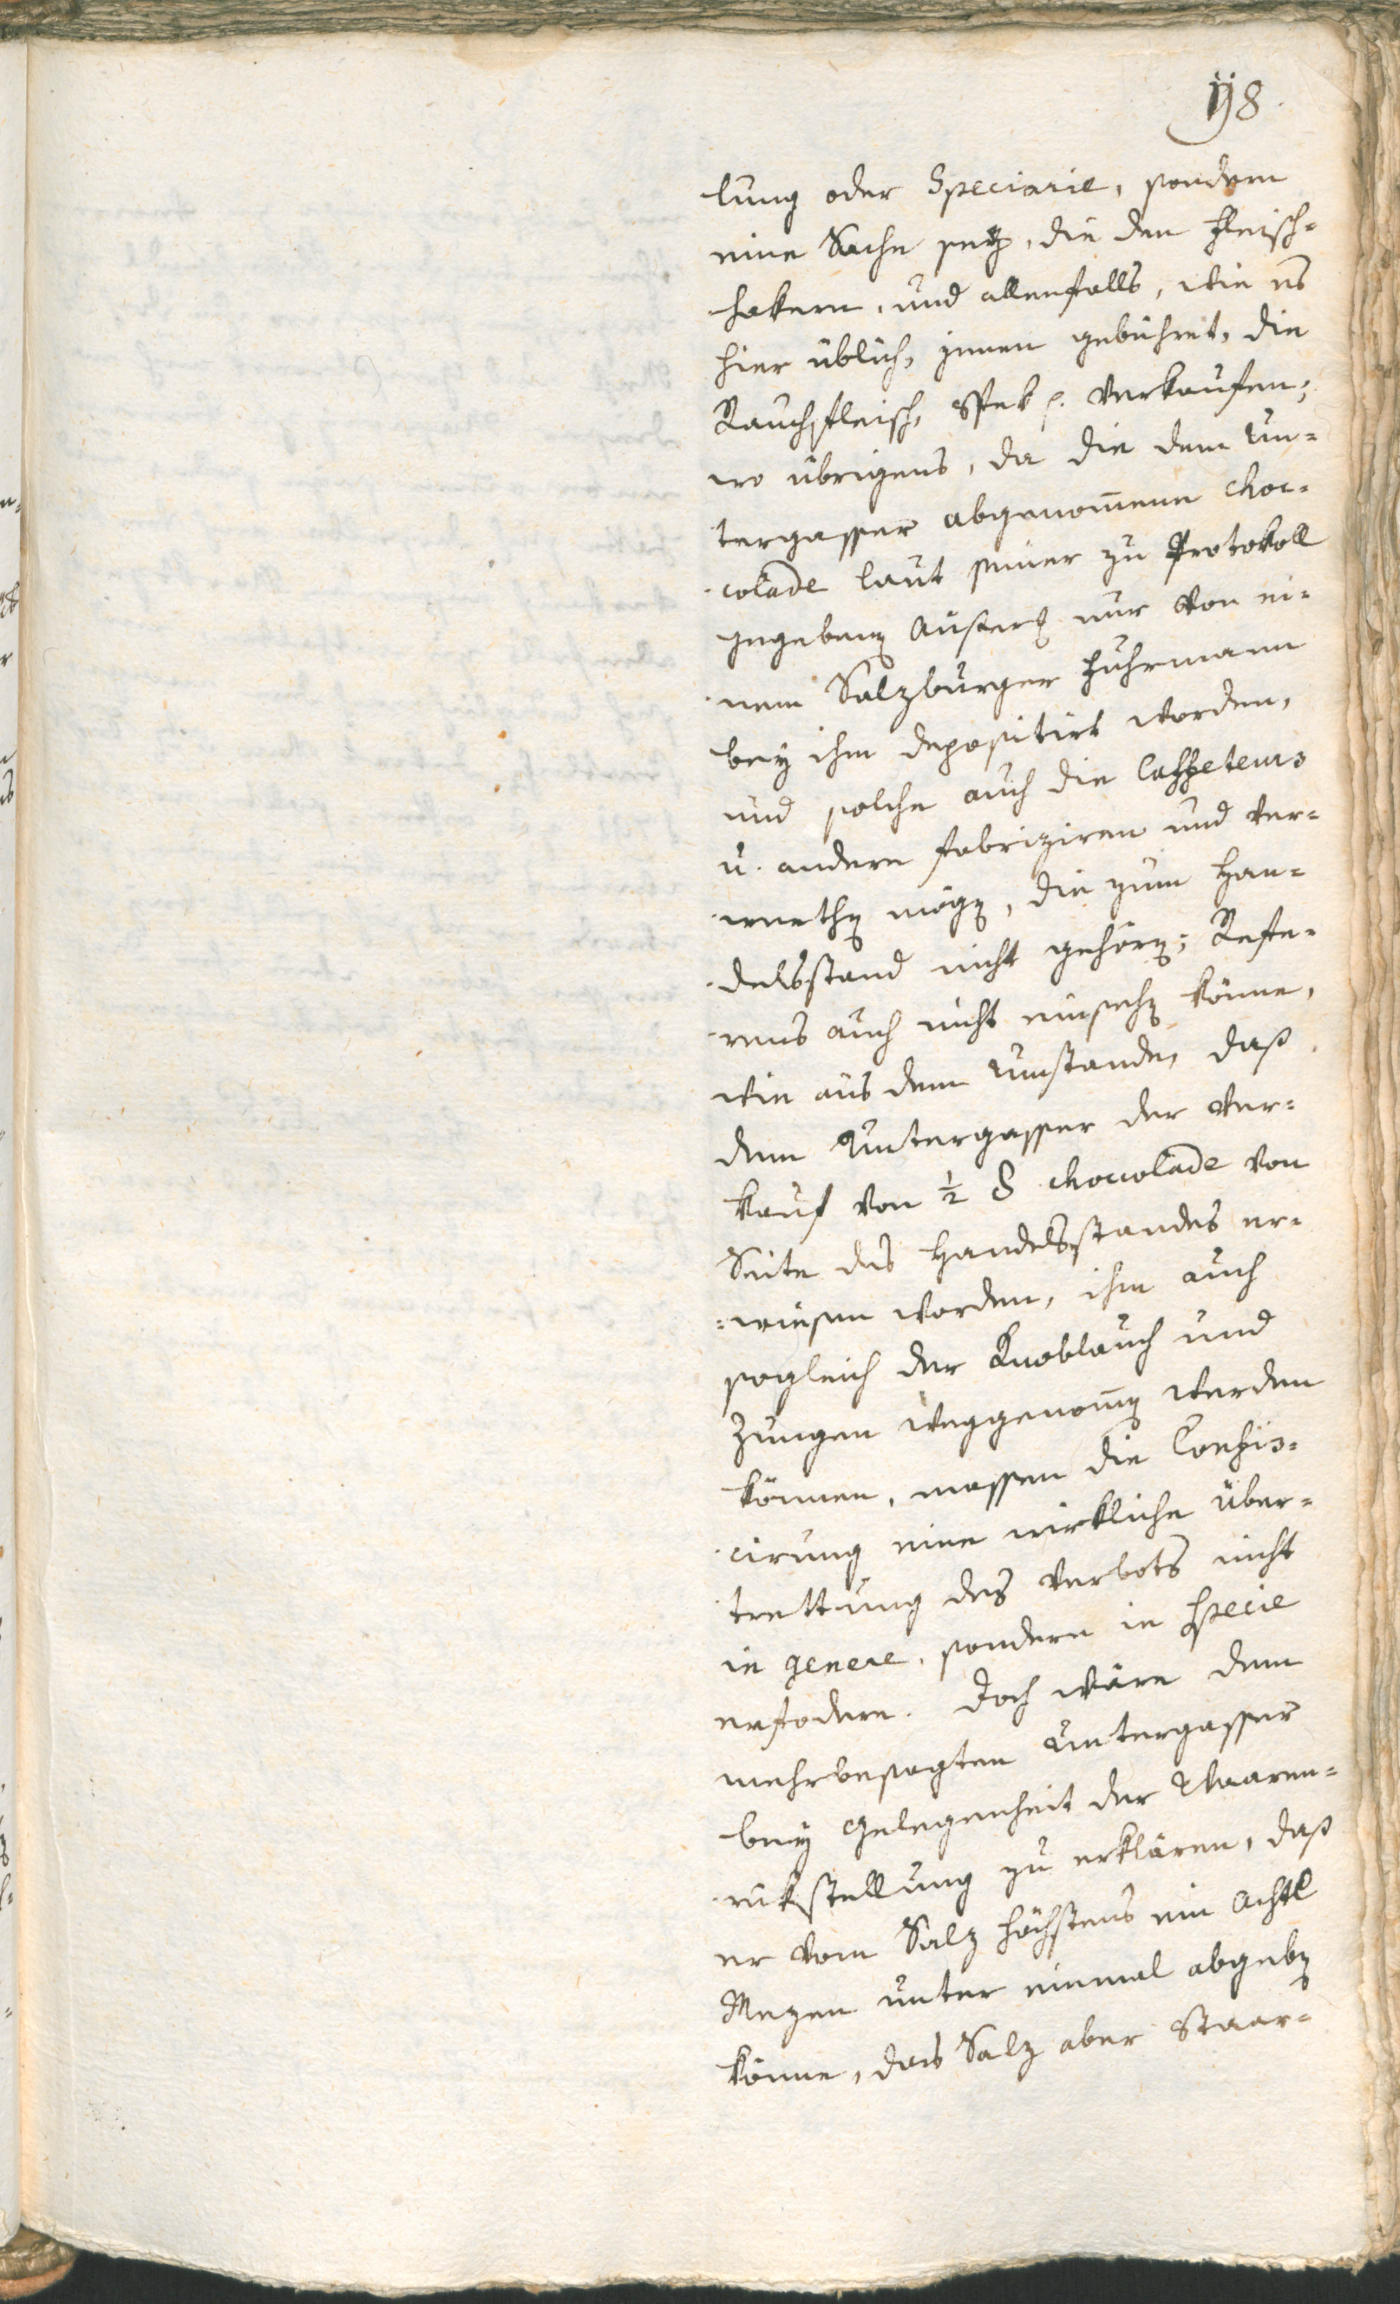 118.
lung oder Speciarie, sondern
eine Sache seyen, die den Fleisch-
hakern, und allenfalls, wie es
hier üblich, jenen gebühret, die
Rauchfleisch, Spek p. verkaufen;
wo übrigens, da die dem Un-
tergasser abgenom̄ene Choc-
colade laut seiner zu Protokoll
gegebenen Äusserung nur von ei-
nem Salzburger Fuhrmann
bey ihm depositirt worden,
und solche auch die Caffeteurs
u. andere fabriziren und ver-
werthen mögen, die zum Han-
delsstand nicht gehören; Refe-
rens auch nicht einsehen könne,
wie aus dem Umstande, daß
dem Untergasser der Ver-
kauf von ½ ℔ Choccolade von
Seite des Handelsstandes er-
wiesen worden, ihm auch
sogleich der Knoblauch und
Zungen weggenom̄en werden
können, massen die Confis-
cirung eine wirkliche Über-
trettung des Verbots nicht
in genere, sondern in specie
erfodere. Doch wäre dem
mehrbesagten Untergasser
bey Gelegenheit der Waaren-
rükstellung zu erklären, daß
er vom Salz höchstens ein Achtl
Mezen unter einmal abgeben
könne, das Salz aber Staar-